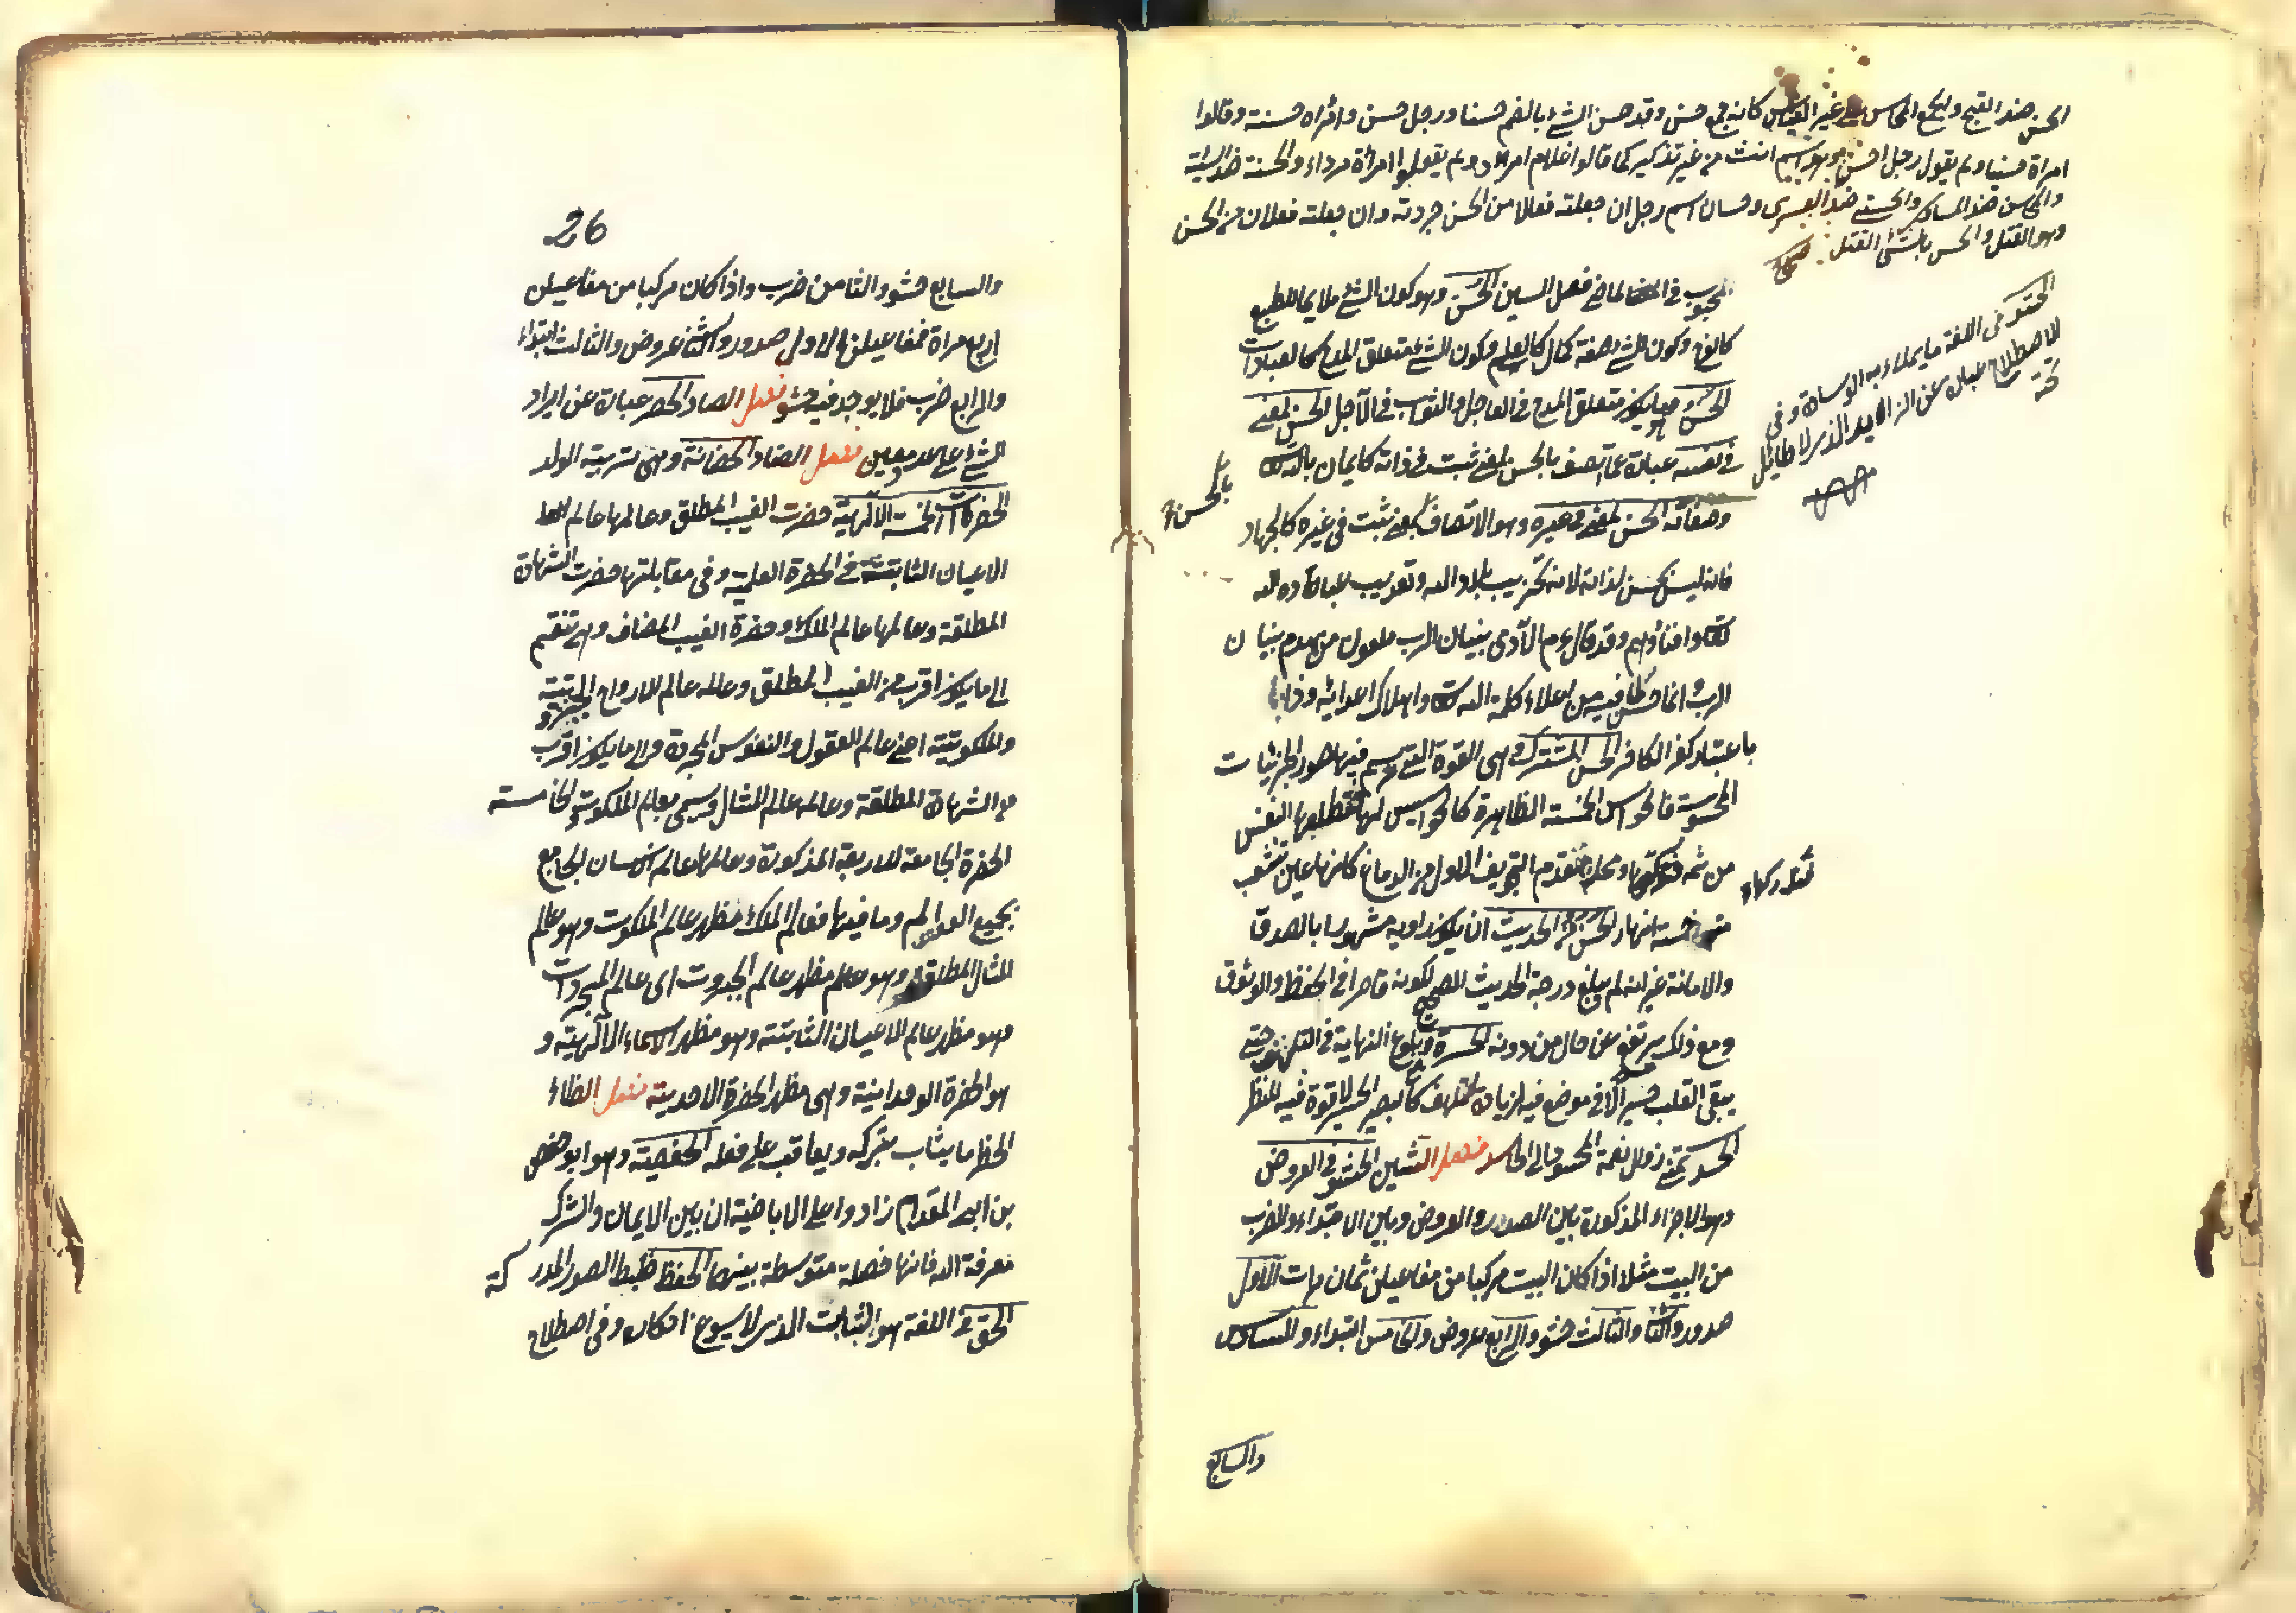 الحسن ضد القبح والجمع المحاسن على غير القياس كانه جمع محسن وقد حسن الشئ بالضم حسنا ورجل حسن وامراة حسنة وقالوا
امراة حسناء ولم يقولوا رجل احسن وهو اسم انث من غير تذكير كما قالوا غلام امرد ولم يقولوا امرأة مرداء والحسنة ضد السيئة
والمحاسن ضد المساوى والحسنى ضد وحسان اسم رجل ان جعلته فعالا من الحسن جردته وان جعلته فعلان من الحس
وهو القتل والحس بالشئ القتل صحاح
الحشو فى اللغة ما يملاء به الوسادة وفى
الاصطلاح عبارة عن الزايد الذى لا طائل
تحته
فصل السين الحسن وهو كون الشئ ملايما للطبع
كالفرح وكون الشئ صفة كمال كالعلم وكون الشئ متعلق المدح كالعبادات
الحسن هو ما يكون متعلق المدح فى العاجل والثواب فى الآجل الحسن لمعنى
فى نفسه عبارة عما اتصف بالحسن لمعنى ثبت فى ذاته كالايمان بالله
وصفاته الحسن لمعنى فى غيره وهو الاتصاف بالحسن لمعنى ثبت فى غيره كالجهاد
فانه ليس بحسن لذاته لانه تخريب بلاد الله وتعذيب عباده
وافناؤهم وقد قال عم الآدمى بنيان الرب ملعون من هدم بنيان
الرب وانما حسن لما فيه من اعلاء كلمة الله واهلاك اعدائه وهذا
باعتبار كفر الكافر الحس المشترك وهى القوة التى ترتسم فيها صور الجزئيات
المحسوسة فالحواس الخمسة الظاهرة كالجواسيس لها فتطلعها النفس
من ثمه فتدركها ومحله مقدم التجويف الاول من الدماغ كانها عين تنشعب
منها خمسة انهار الحسن من الحديث ان يكون راويه مشهورا بالصدق
والامانة غير انه لم يبلغ درجة الحديث الصحيح لكونه قاصرا فى الحفظ والوثوق
ومع ذلك يرتفع عن حال من دونه الحسرة وبلوغ النهاية فى التلهف حتى
يبقى القلب حسيرا لا موضع فيه لزيادة التلهف كالبصر الحسير لا قوة فيه للنظر
الحسد تمنى زوال نعمة المحسود الى الحاسد فصل الشين الحشو فى العروض
وهو الاجزاء المذكورة بين الصدر والعروض وبين الابتداء والضرب
من البيت مثلا اذا كان البيت مركبا من مفاعيلن ثمان مرات الاول
صدر والثانى والثالث حشو والرابع عروض والخامس ابتداء والسادس
والسابع
26
والسابع حشو والثامن ضرب واذا كان مركبا من مفاعيلن
اربع مراة فمفاعيلن الاول صدر والثانى عروض والثالث ابتداء
والرابع ضرب فلا يوجد فيه حشو فصل الصاد الحصر عبارة عن ايراد
الشئ على عدد معين فصل الضاد الحضانة وهى تربية الولد
الحضرات الخمسة الآلهية حضرت الغيب المطلق وعالمها عالم
الاعيان الثابتة فى الحضرة العلمية وفى مقابلتها حضرت الشهادة
المطلقة وعالمها عالم الملك وحضرة الغيب المضاف وهى تنقسم
الى ما يكون اقرب من الغيب المطلق وعالمه عالم الارواح الجبروتية
والملكوتية اعنى عالم العقول والنفوس المجردة والى ما يكون اقرب
من الشهادة المطلقة وعالمه عالم المثال ويسمى بعالم الملكوت والخامسة
الحضرة الجامعة للاربعة المذكورة وعالمها عالم الانسان الجامع
بجميع العوالم وما فيها فعالم الملك مظهر عالم الملكوت وهو عالم
المثال المطلق وهو مظهر عالم الجبروت اى عالم المجردات
وهو مظهر عالم الاعيان الثابتة وهو مظهر الاسماء الآلهية و
هو الحضرة الوحدانية وهى مظهر الحضرة الاحدية فصل الظاء
الحظر ما يثاب بتركه ويعاقب على فعله الحفصية وهو ابو حفص
بن ابى المقدام زادوا على الاباضية ان بين الايمان والشرك
معرفة الله فانها خصلة متوسطة بينهما الحفظ ضبط الصور المدركة
الحق فى اللغة هو الثابت الذى لا يسوغ انكاره وفى اصطلاح